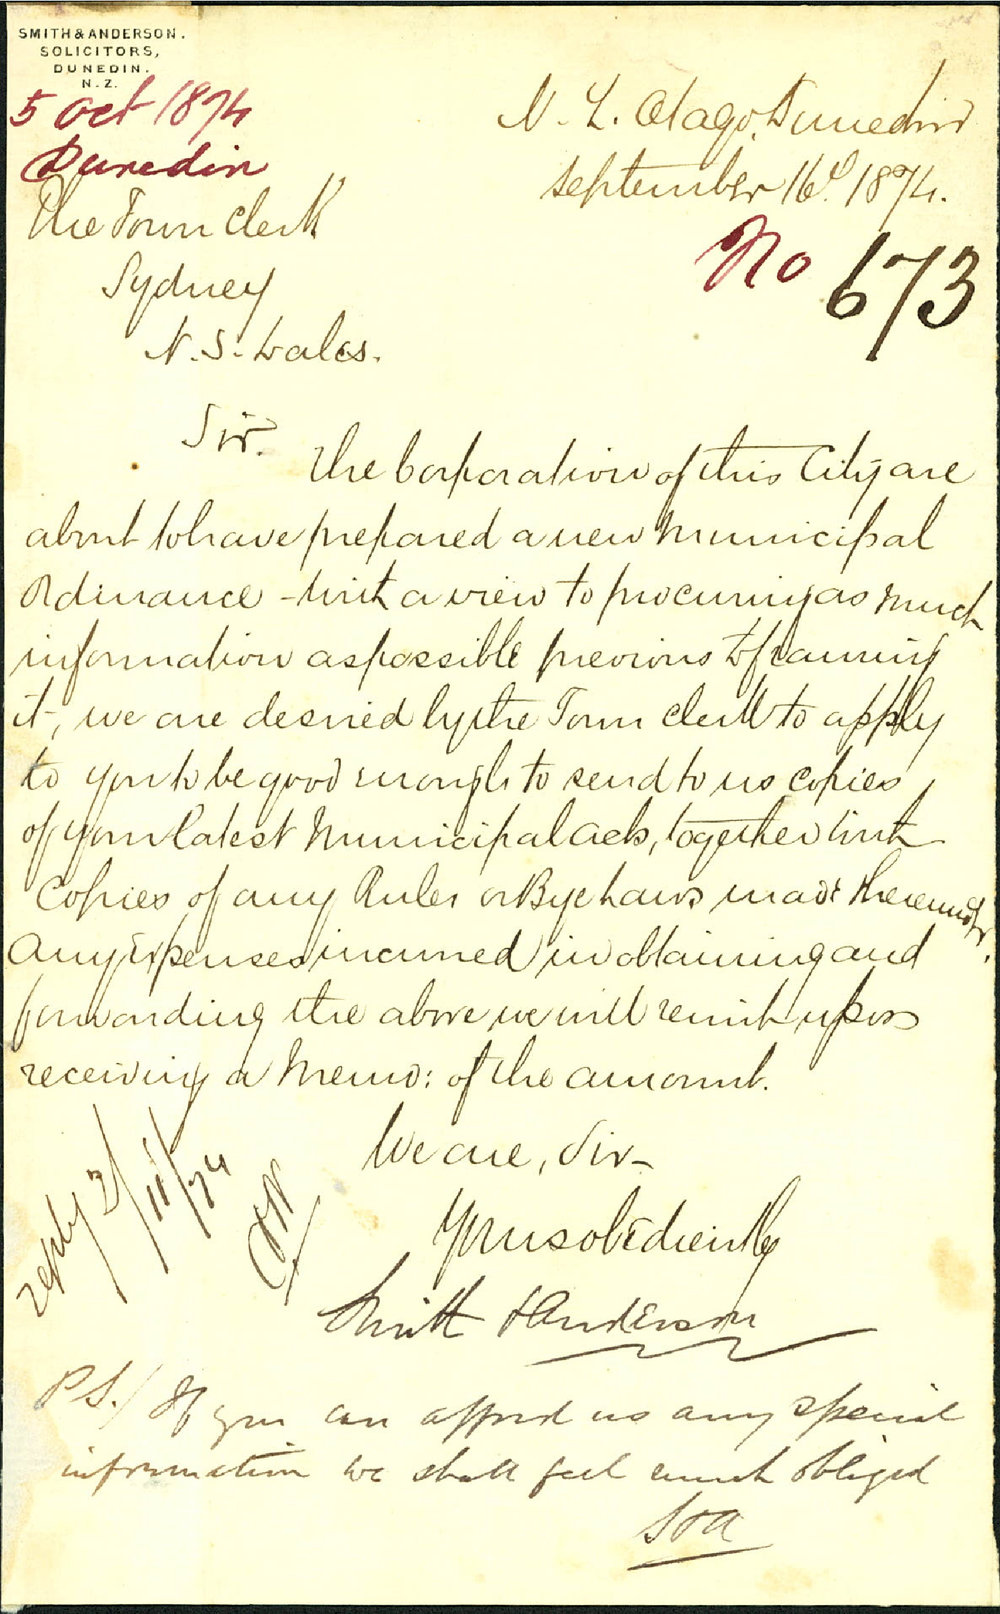 SMITH & ANDERSON.
SOLICITORS,
DUNEDIN.
N.Z.
5 Oct 1874
Dunedin
N.Z. Otago, Dunedin
September 16th 1874.
No 673
The Town Clerk
Sydney
N.S. Wales.
Sir.
The Corporation of this City are
about to have prepared a new Municipal
Ordinance - with a view to procuring as much
information as possible previous to framing
it, we are desired by the Town Clerk to apply
to you to be good enough to send to us copies
of your latest Municipal Acts, together with
Copies of any Rules or Bye Laws made thereunder.
Any Expenses incurred in obtaining and
forwarding the above we will remit upon
receiving a Memo: of the amount.
We are, Sir -
Yours obediently
Smith & Anderson
reply 2/11/74
P.S./ If you can afford us any special
information we shall feel much obliged
S & A